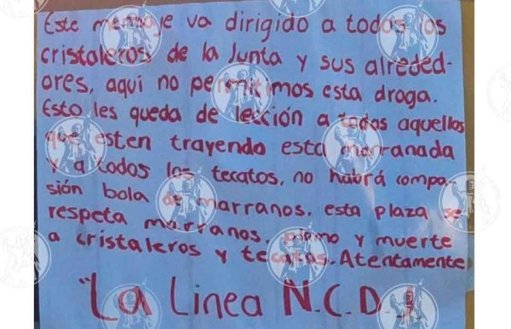 Este mensaje va dirigido a todos los
cristaleros de la Junta y sus alreded-
ores, aquí no permitimos esta droga.
Esto les queda de lección a todos aquellos
que esten trayendo esta marranada
y a todos los tecatos, no habrá compa-
sión bola de marranos, esta plaza se
respeta marranos, plomo y muerte
a cristaleros y tecatos. Atentamente
"La Linea N.C.D.J